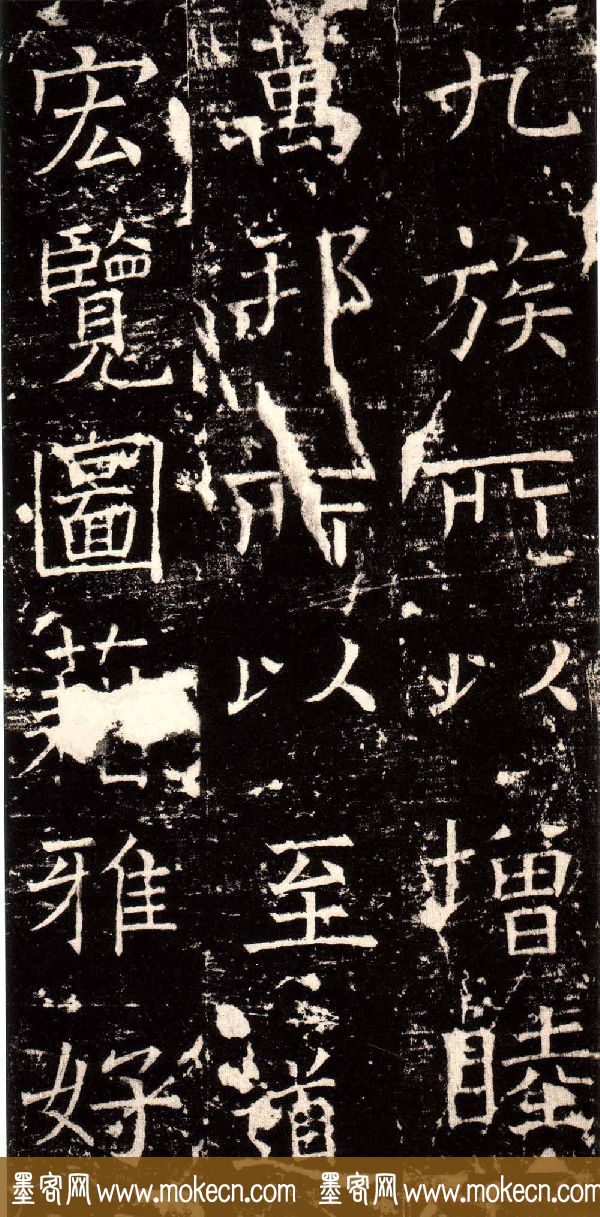 九族所以增睦
萬邦所以至道
宏覽圖籍雅好
墨客网 www.mokecn.com 墨客网 www.mokecn.com